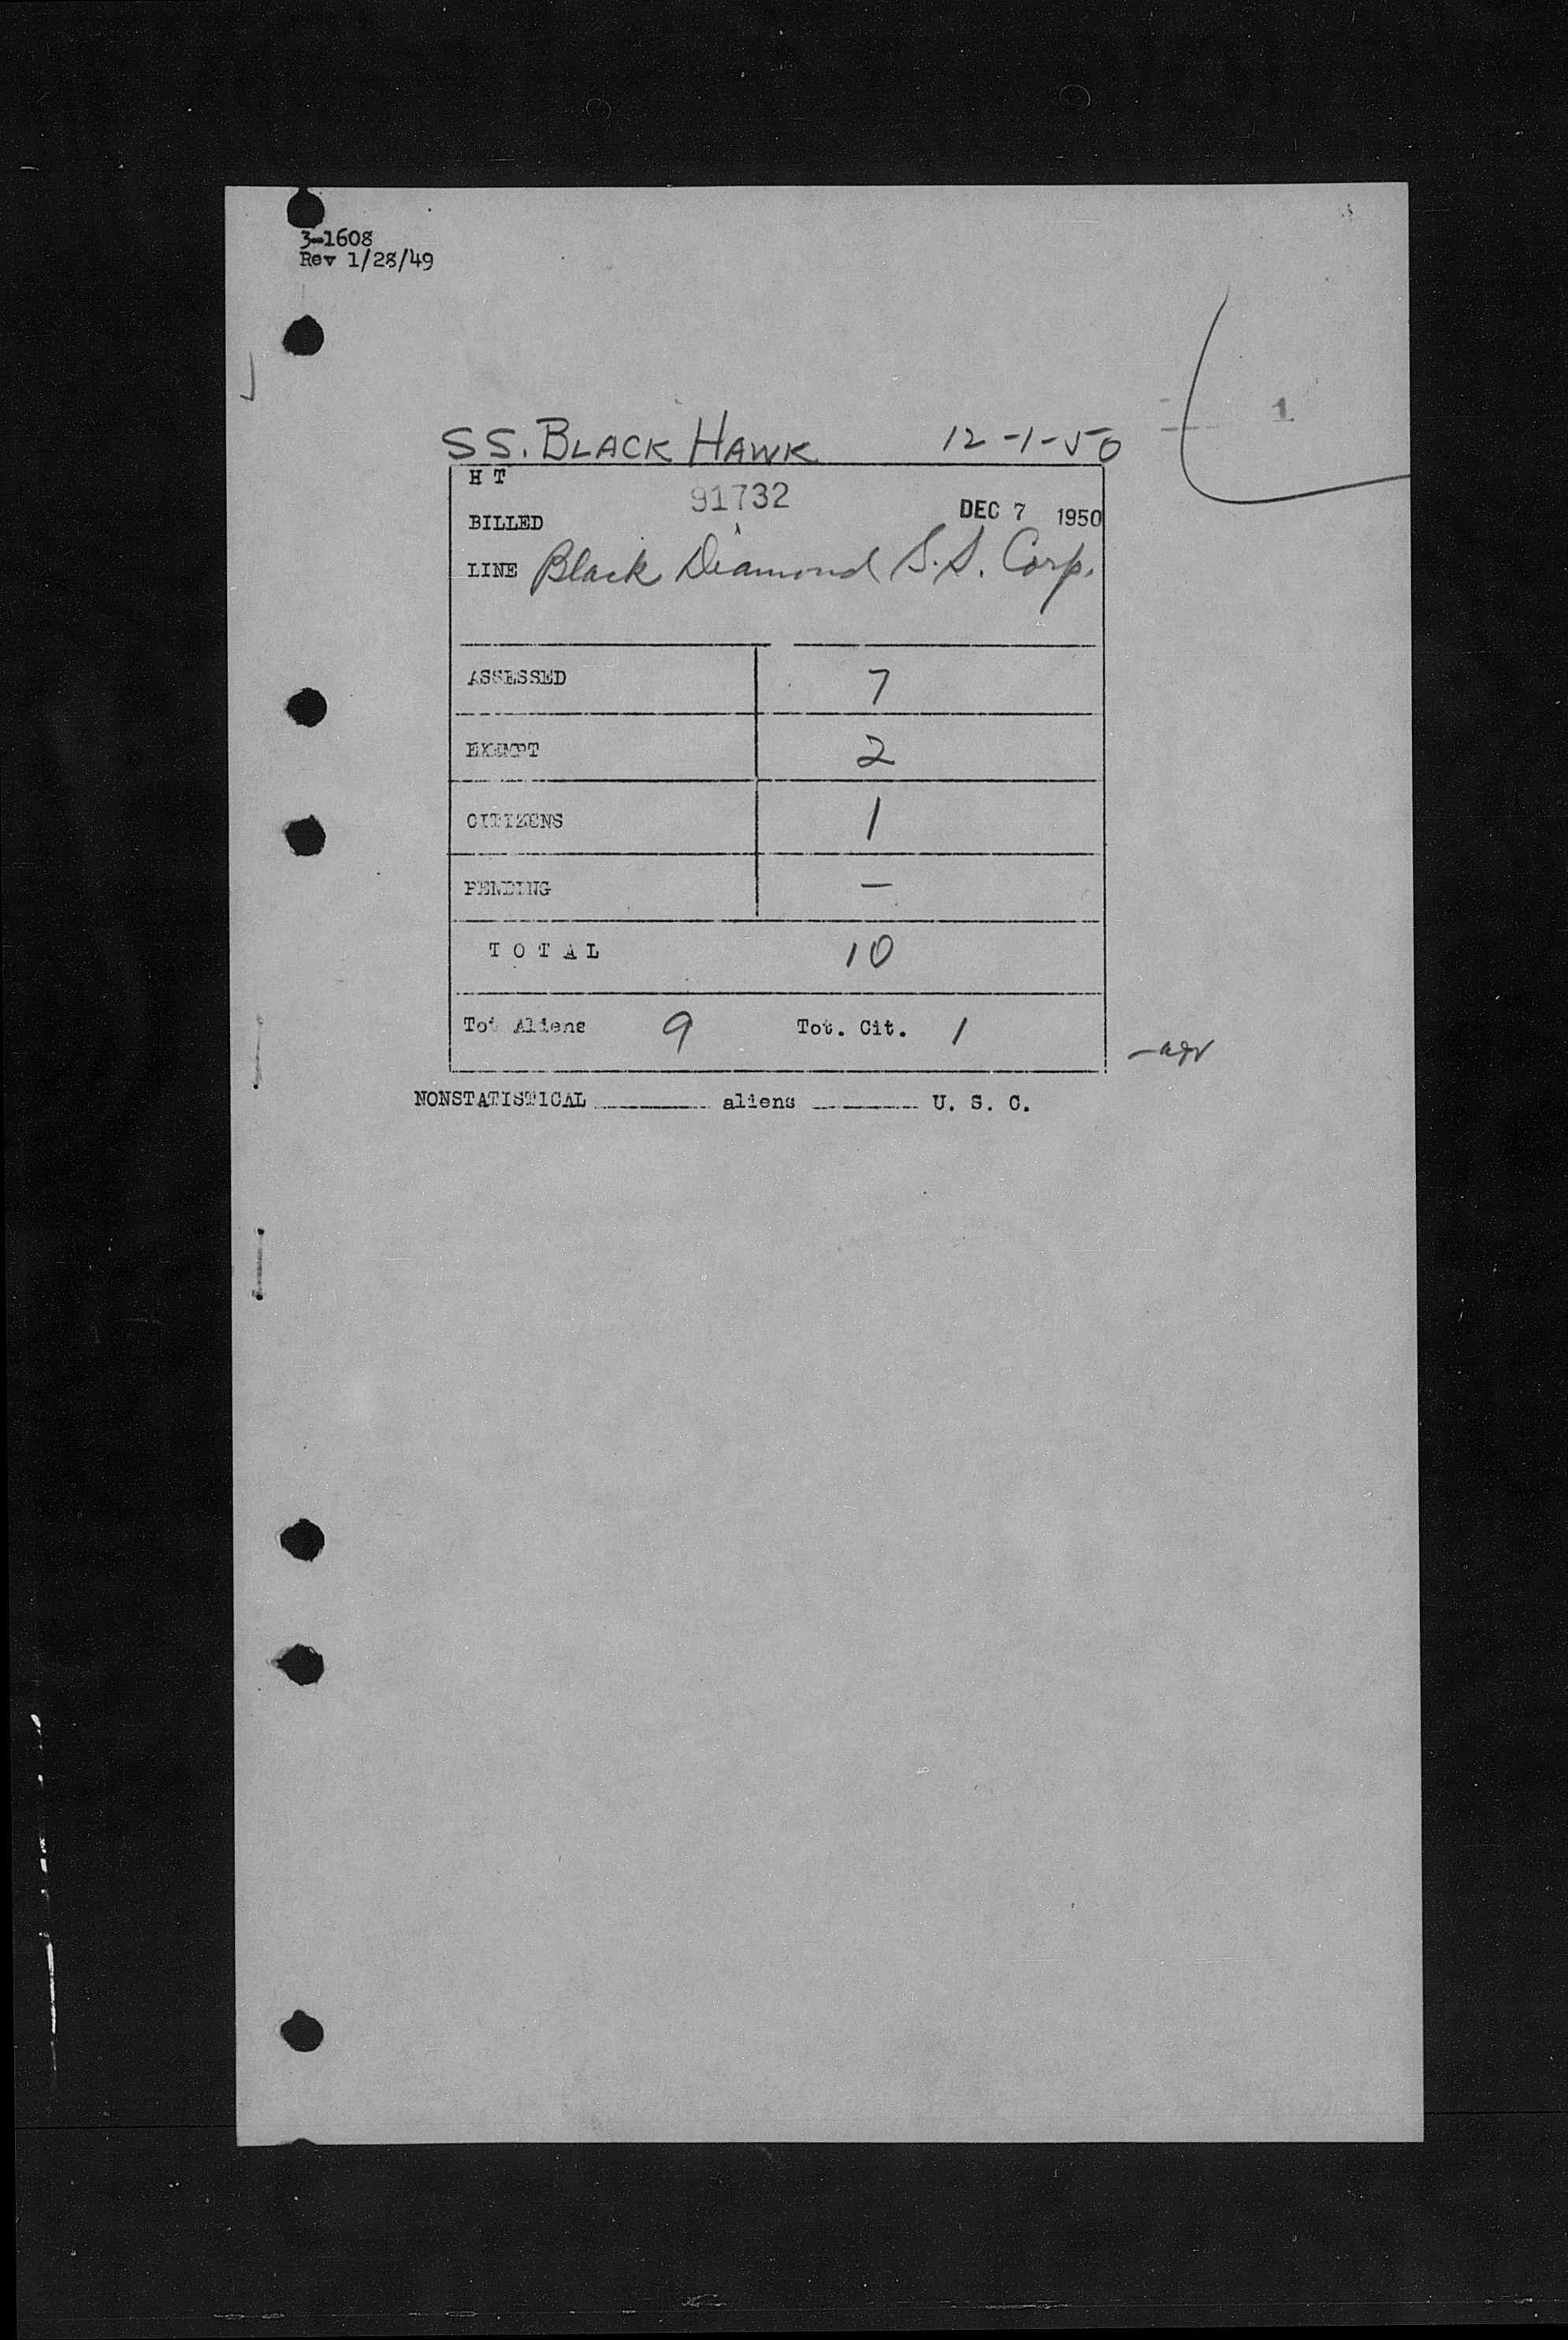 3-1608
Rev 1/28/49
1
SS. BLACK HAWK 12-1-50
H T
91732
BILLED DEC 7 1950
LINE Black Diamond S.S. Corp.
ASSESSED 7
EXEMPT 2
CITIZENS 1
PENDING —
T O T A L 10
Tot Aliens 9 Tot. Cit. 1
NONSTATISTICAL ________ aliens ________ U. S. C.